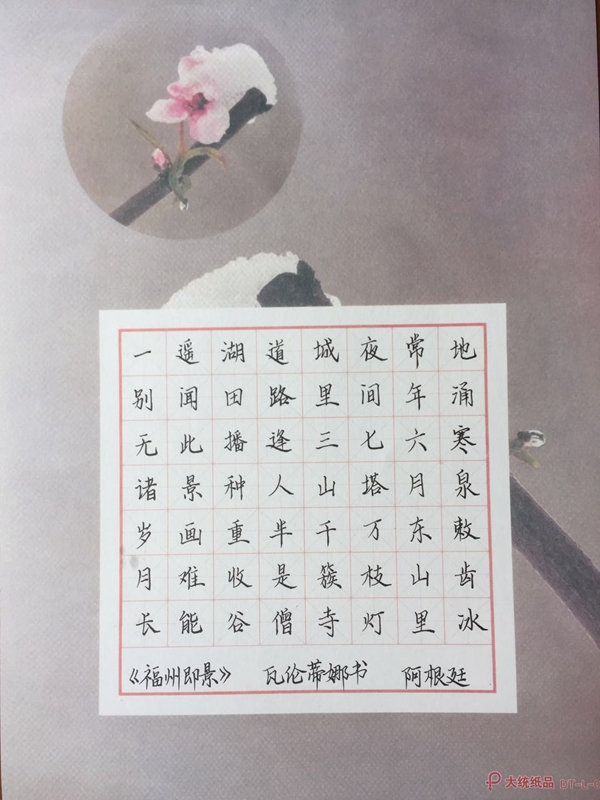 一别无诸岁月长
遥闻此景画难能
湖田播种重收谷
道路逢人半是僧
城里三山千簇寺
夜间七塔万枝灯
常年六月东山里
地涌寒泉敕齿冰
《福州即景》 瓦伦蒂娜书 阿根廷
大统纸品